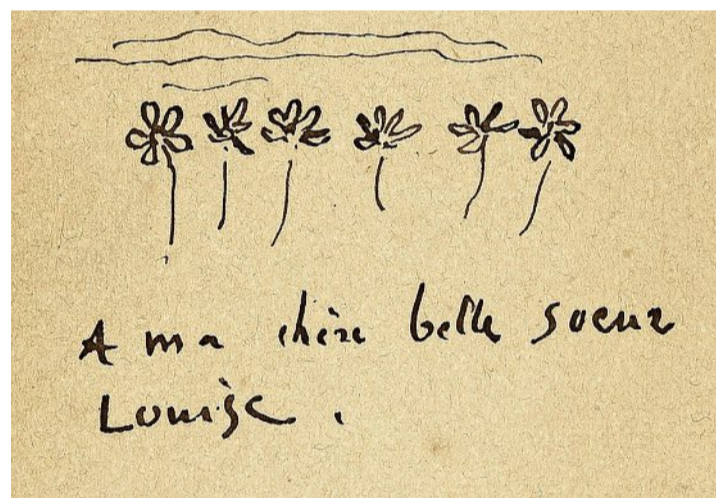 A ma chère belle soeur
Louise.